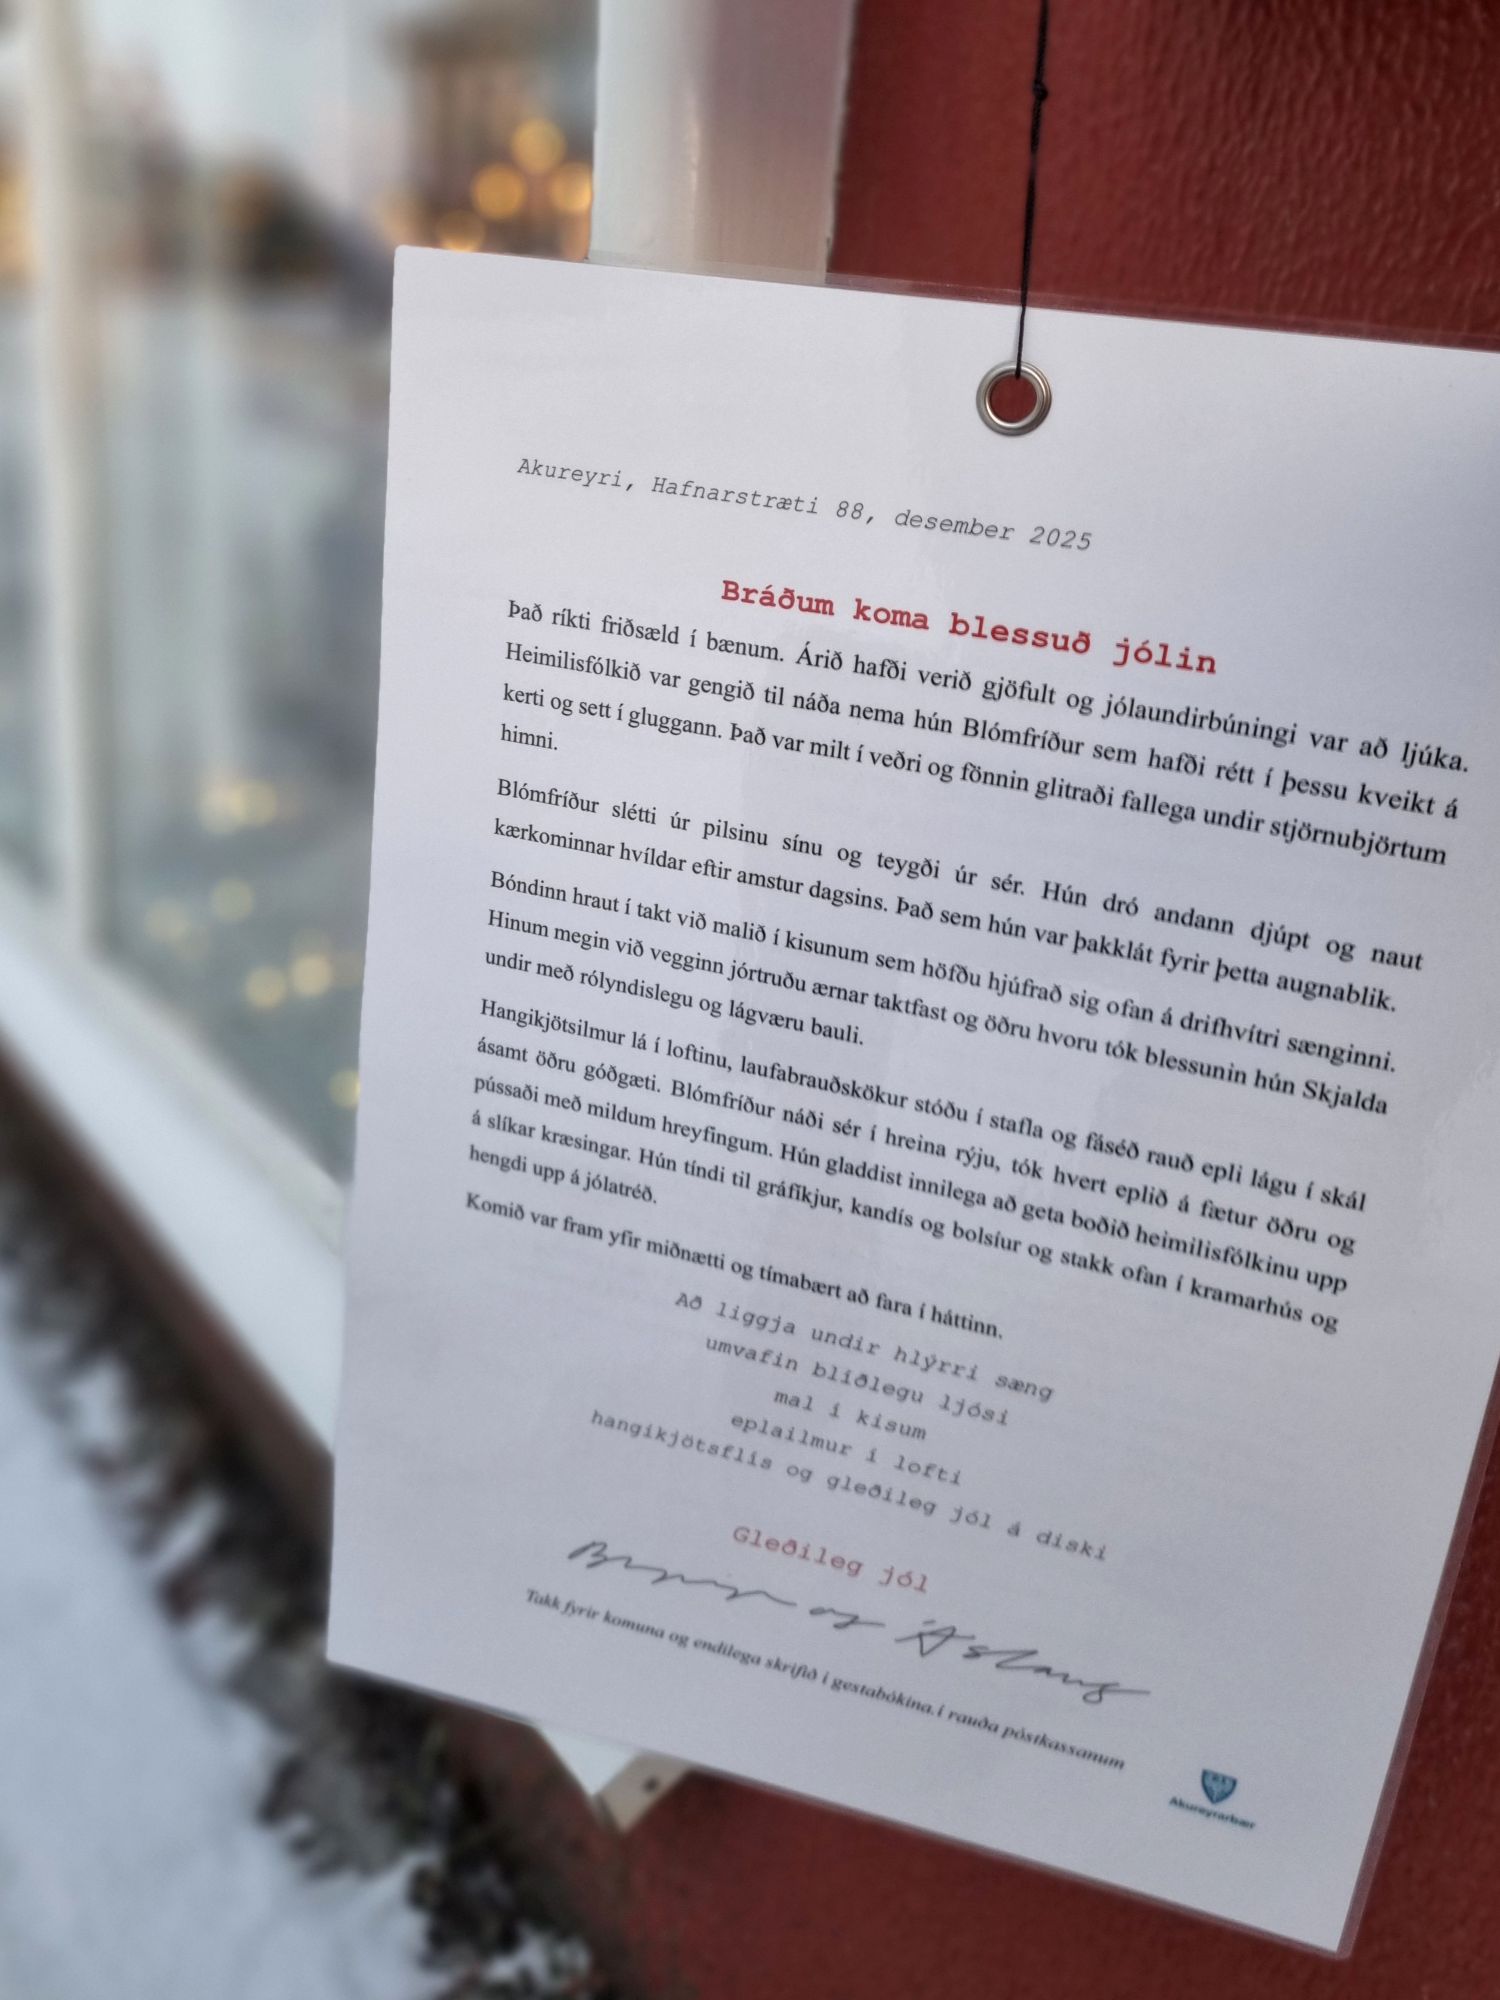 Akureyri, Hafnarstræti 88, desember 2025
Bráðum koma blessuð jólin
Það ríkti friðsæld í bænum. Árið hafði verið gjöfult og jólaundirbúningi var að ljúka.
Heimilisfólkið var gengið til náða nema hún Blómfríður sem hafði rétt í þessu kveikt á
kerti og sett í gluggann. Það var milt í veðri og fönnin glitraði fallega undir stjörnubjörtum
himni.
Blómfríður slétti úr pilsinu sínu og teygði úr sér. Hún dró andann djúpt og naut
kærkominnar hvíldar eftir amstur dagsins. Það sem hún var þakklát fyrir þetta augnablik.
Bóndinn hraut í takt við malið í kisunum sem höfðu hjúfrað sig ofan á drifhvítri sænginni.
Hinum megin við vegginn jórtruðu ærnar taktfast og öðru hvoru tók blessunin hún Skjalda
undir með rólyndislegu og lágværu bauli.
Hangikjötsilmur lá í loftinu, laufabrauðskökur stóðu í stafla og fáséð rauð epli lágu í skál
ásamt öðru góðgæti. Blómfríður náði sér í hreina rýju, tók hvert eplið á fætur öðru og
pússaði með mildum hreyfingum. Hún gladdist innilega að geta boðið heimilisfólkinu upp
á slíkar kræsingar. Hún tíndi til gráfíkjur, kandís og bolsíur og stakk ofan í kramarhús og
hengdi upp á jólatréð.
Komið var fram yfir miðnætti og tímabært að fara í háttinn.
Að liggja undir hlýrri sæng
umvafin blíðlegu ljósi
mal í kisum
eplailmur í lofti
hangikjötsflís og gleðileg jól á diski
Gleðileg jól
og Áslaug
Takk fyrir komuna og endilega skrifið í gestabókina.í rauða póstkassanum
Akureyrarbær